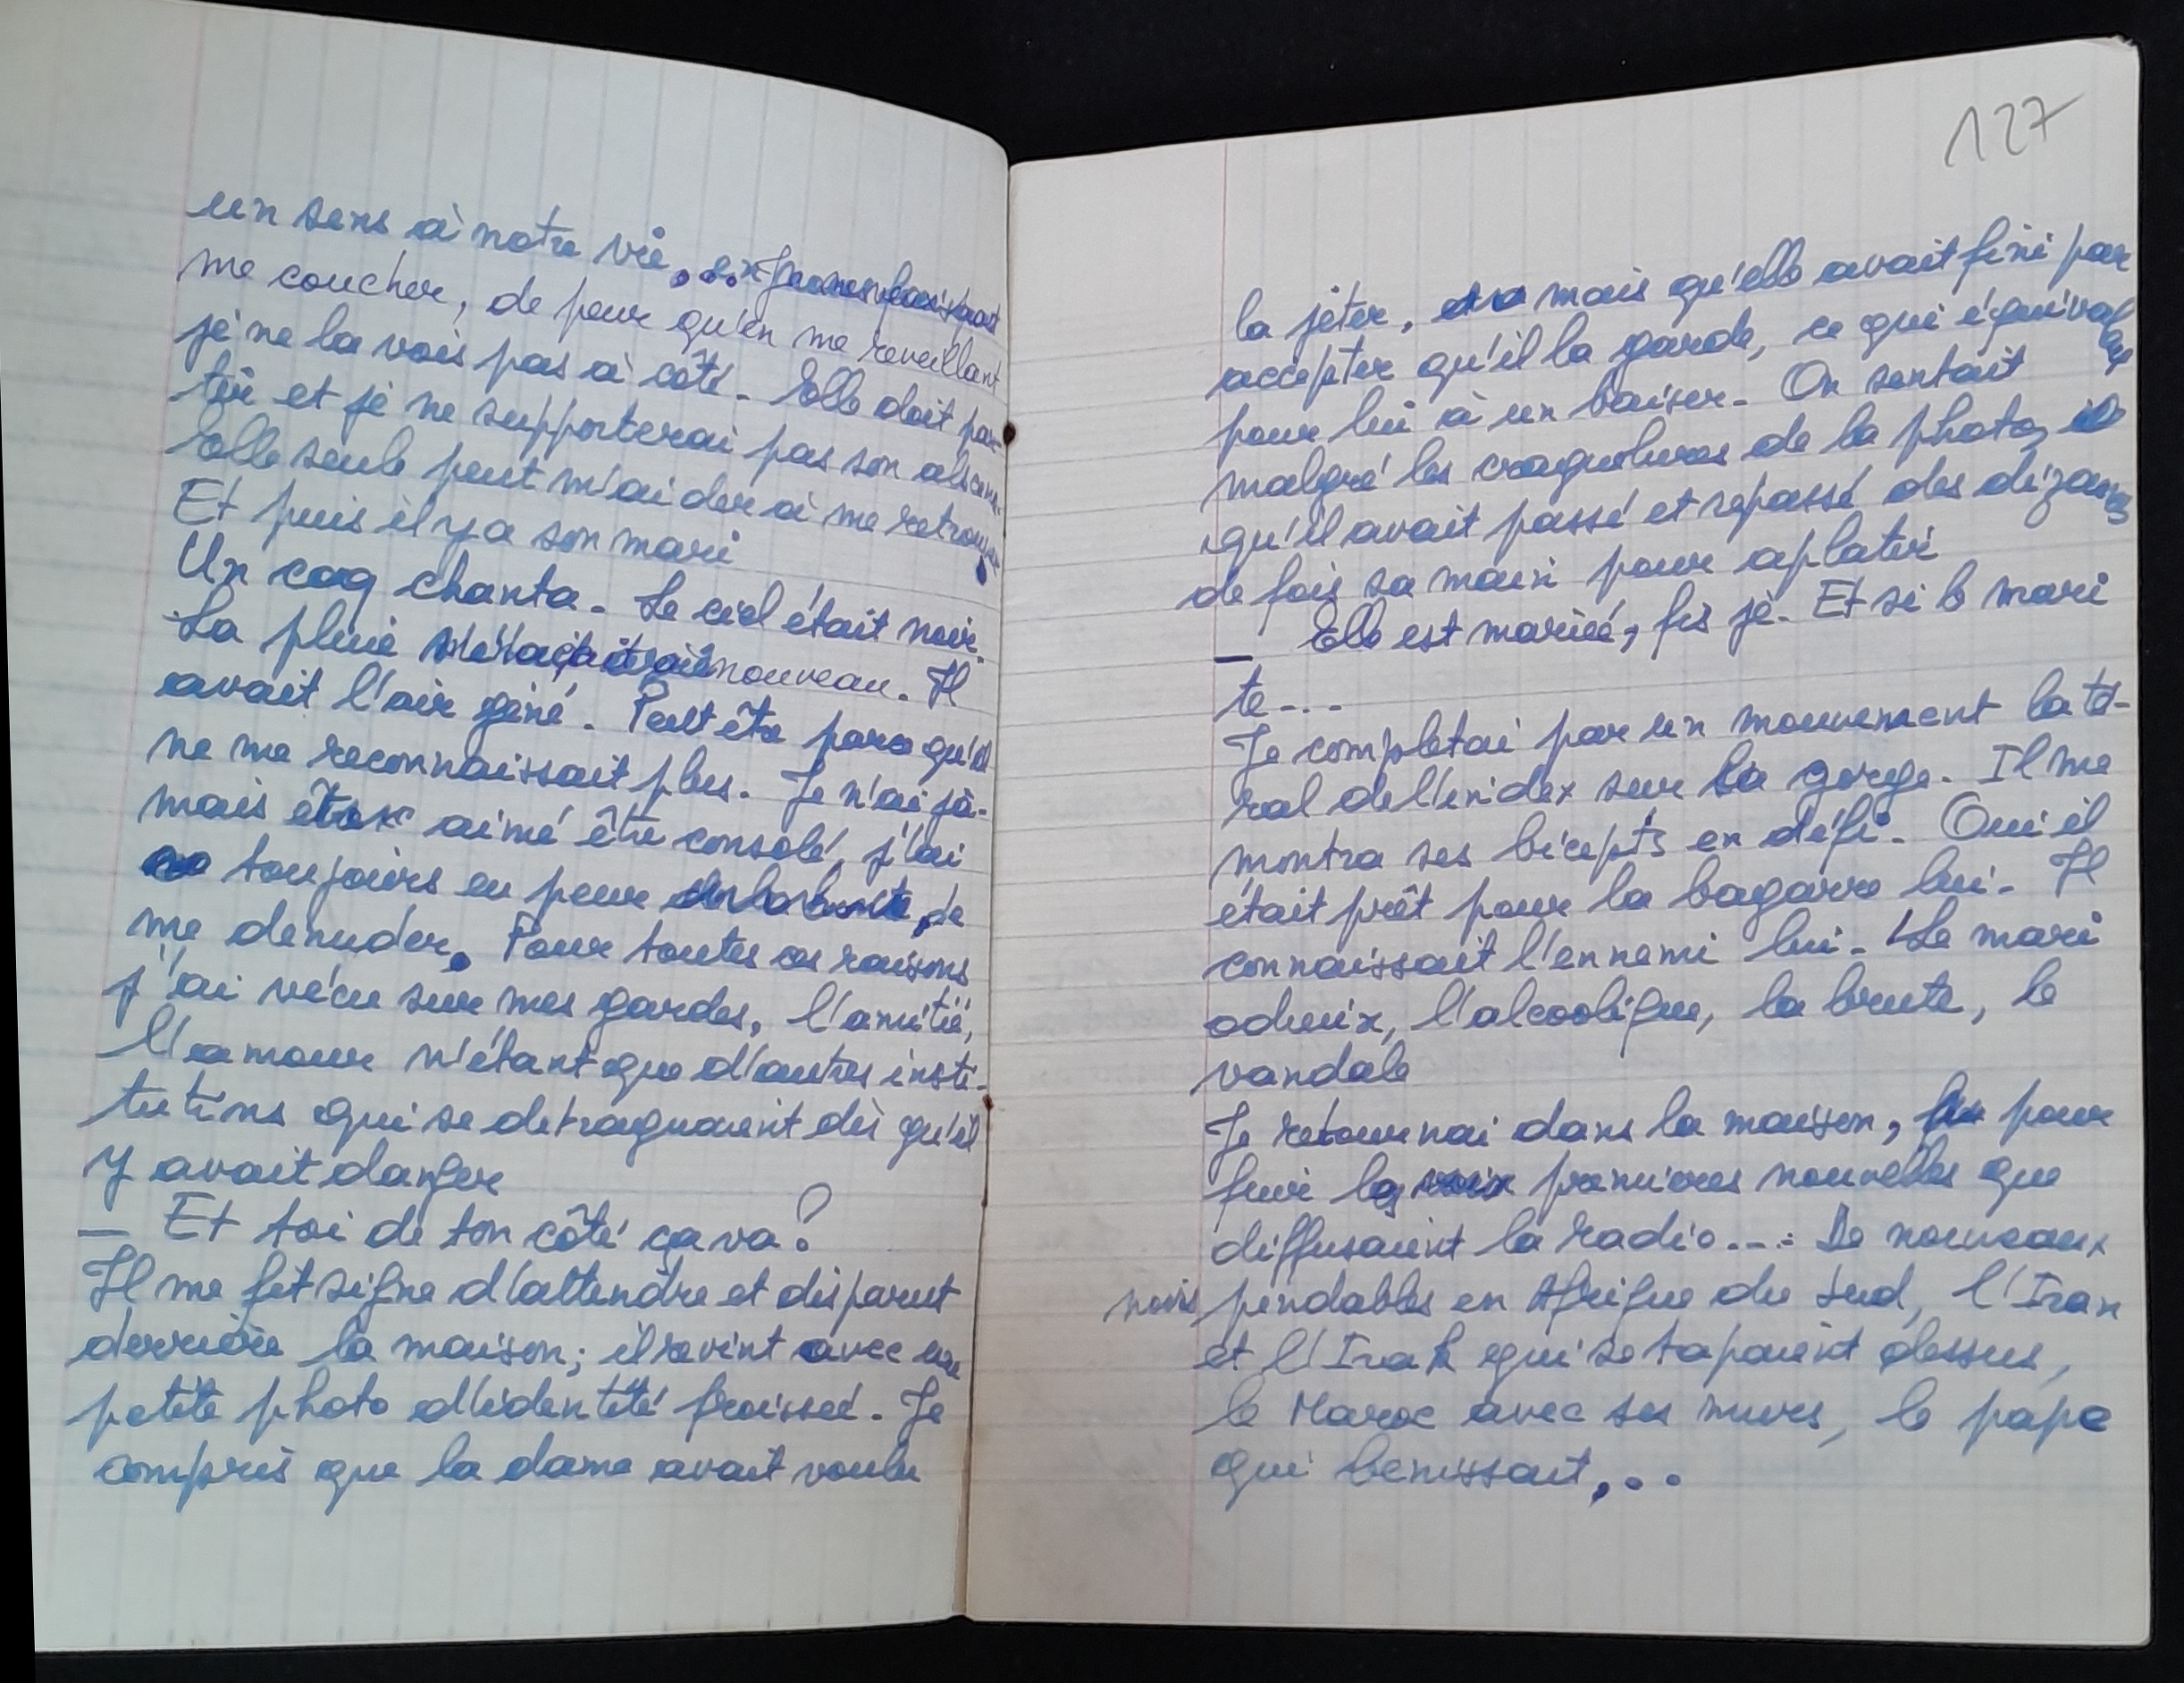 un sens à notre vie,
me coucher, de peur qu'en me reveillant
je ne la vois pas à côté. Elle doit par
tir et je ne supporterai pas son absence.
Elle seule peut m'aider à me retrouver
Et puis il y a son mari
Un coq chanta. Le ciel était noir.
La pluie nouveau. Il
avait l'air gêné. Peut être parce qu'il
ne me reconnaissait plus. Je n'ai ja-
mais aimé être consolé, j'ai
toujours eu peur de
me denuder. Pour toutes ces raisons
j'ai vécu sur mes gardes, l'amitié,
l'amour n'étant que d'autres insti-
tutions qui se detraquaient dès qu'il
y avait danger
_ Et toi de ton côté ça va?
Il me fit signe d'attendre et disparut
derrière la maison; il revint avec une
petite photo d'identité froissée. Je
compris que la dame avait voulu
127
la jeter, mais qu'elle avait fini par
accepter qu'il la garde, ce qui équival
ait
pour lui à un baiser. On sentait
malgré les craquelures de la photo,
qu'il avait passé et repassé des dizaines
de fois sa main pour aplatir
_ Elle est mariée, fis je. Et si le mari
te...
Je completai par un mouvement laté-
ral de l'index sur la gorge. Il me
montra ses bicepts en défi. Oui il
était prêt pour la bagarre lui. Il
connaissait l'ennemi lui. Le mari
odieux, l'alcoolique, la brute, le
vandale
Je retournai dans la maison, pour
fuir les premieres nouvelles que
diffusaient la radio...: De nouveaux
noirs pendables en Afrique du Sud, l'Iran
et l'Irak qui se tapaient dessus,
le Maroc avec ses murs, le pape
qui benissait,..